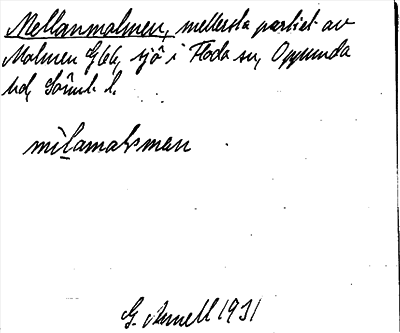 Mellanmalmen, mellersta partiet av
Malmen Gbl, sjö i Floda sn, Oppunda
hd, Söml. l.
milamalmen
G. Arnell 1931